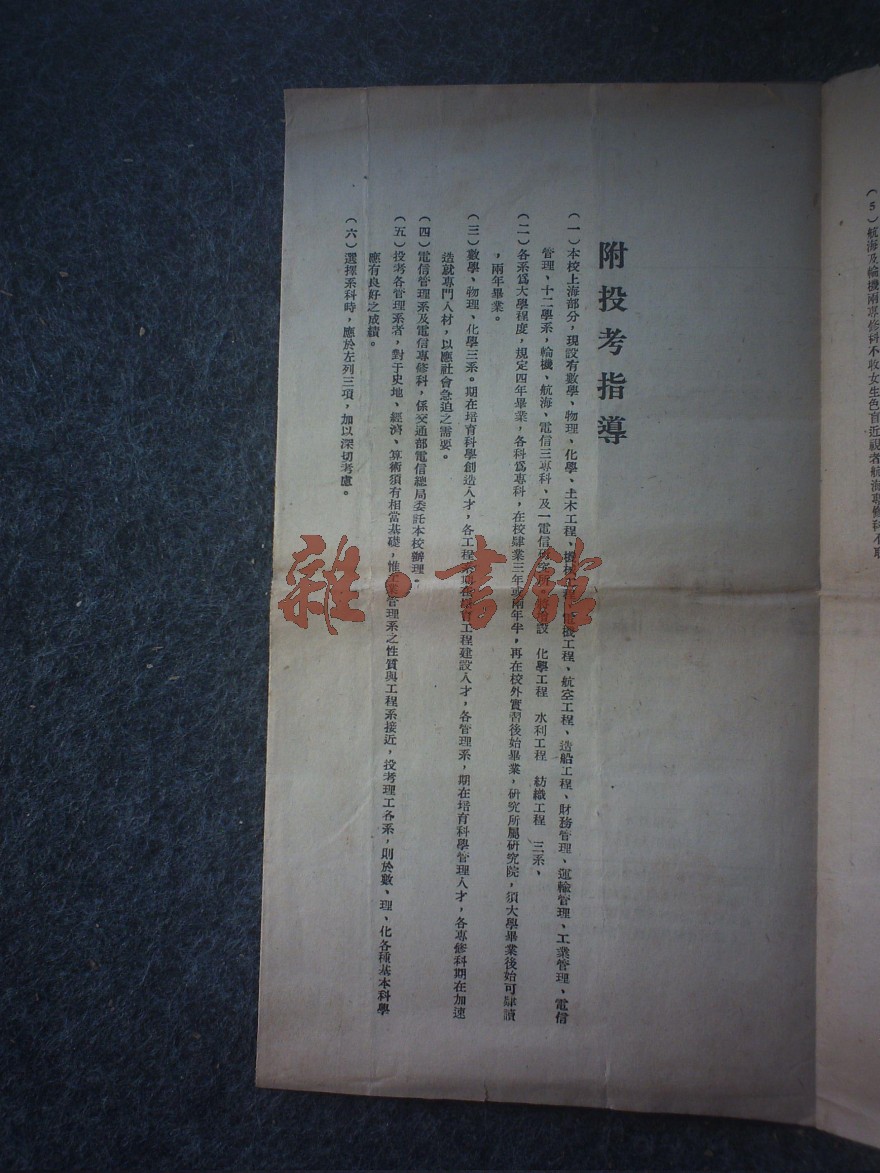 (5)航海及輪機兩專修科不收女生色盲近視者航海專修科不取
附投考指導
(一)本校上海部分,現設有數學、物理、化學、土木工程、機械工程、電機工程、航空工程、造船工程、財務管理、運輸管理、工業管理、電信
管理、十二學系,輪機、航海、電信三專科、及一電信研究所 設 化學工程 水利工程 紡織工程 三系、
(二)各系爲大學程度,規定四年畢業,各科爲專科,在校肄業三年或兩年半,再在校外實習後始畢業,研究所屬研究院,須大學畢業後始可肄讀
,兩年畢業。
(三)數學、物理、化學三系。期在培育科學創造人才,各工程系期在 工程建設人才,各管理系,期在培育科學管理人才,各專修科期在加速
造就專門人材,以應社會急迫之需要。
(四)電信管理系及電信專修科,係交通部電信總局委託本校辦理。
(五)投考各管理系者,對于史地、經濟、算術須有相當基礎,惟工業管理系之性質與工程系接近,投考理工各系,則於數、理、化各種基本科學
應有良好之成績。
(六)選擇系科時,應於左列三項,加以深切考慮。
雜·書館